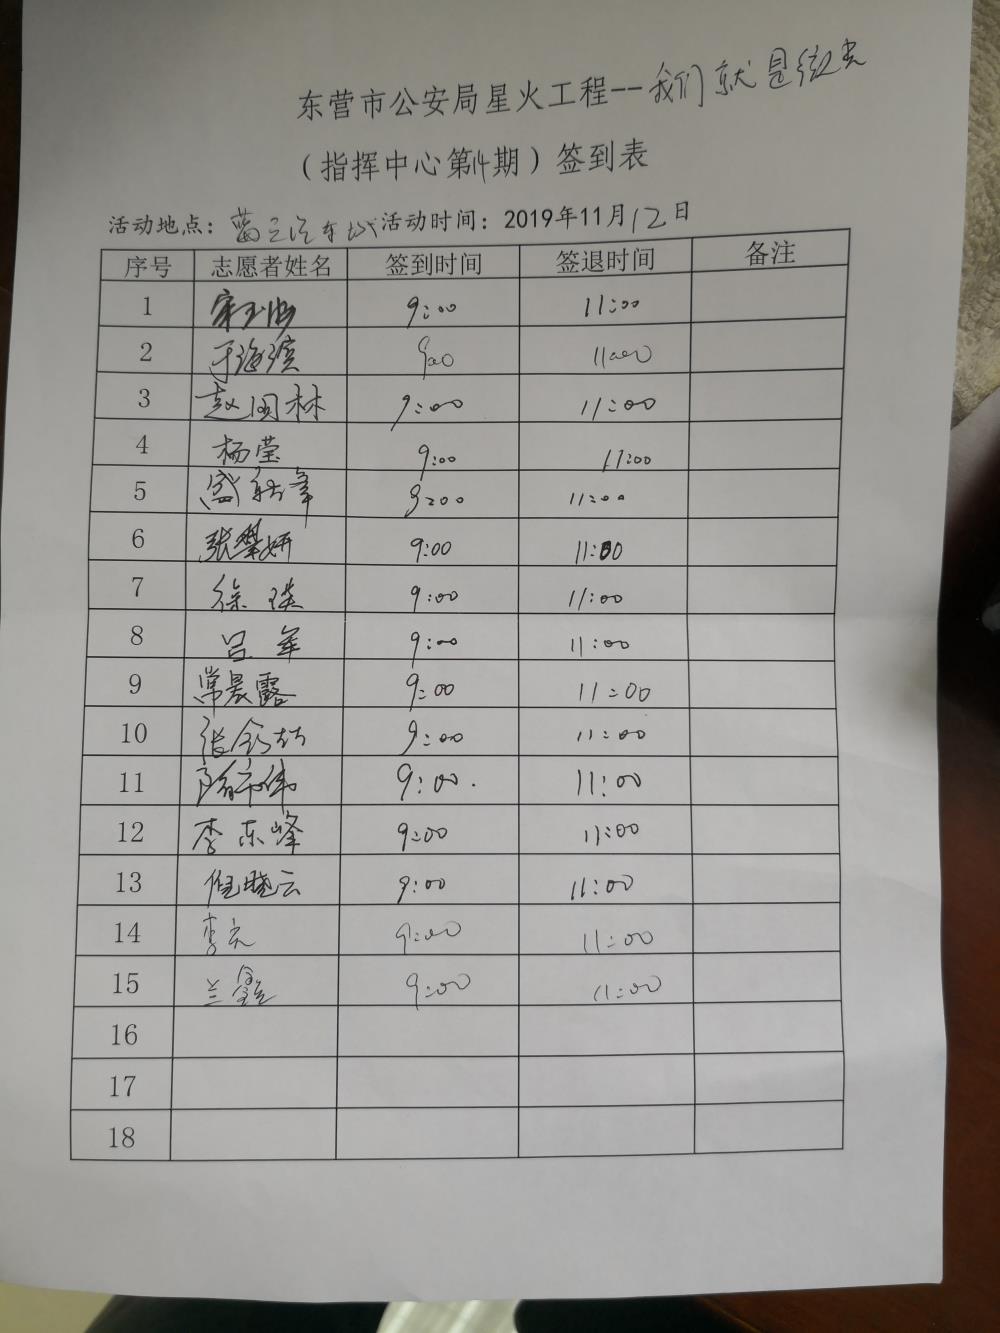 东营市公安局星火工程--我们就是微光
(指挥中心第14期)签到表
活动地点: 汽车 活动时间: 2019年11月12日
序号 志愿者姓名 签到时间 签退时间 备注
1 宋玉海 9:00 11:00
2 于海滨 9:00 11:00
3 赵国林 9:00 11:00
4 杨莹 9:00 11:00
5 盛 峰 9:00 11:00
6 张 妍 9:00 11:00
7 徐瑛 9:00 11:00
8 吕军 9:00 11:00
9 常晨露 9:00 11:00
10 张 9:00 11:00
11 伟 9:00.11:00
12 李东峰 9:00 11:00
13 倪晓云 9:00 11:00
14 李元 9:00 11:00
15 兰鑫 9:00 11:00
16
17
18